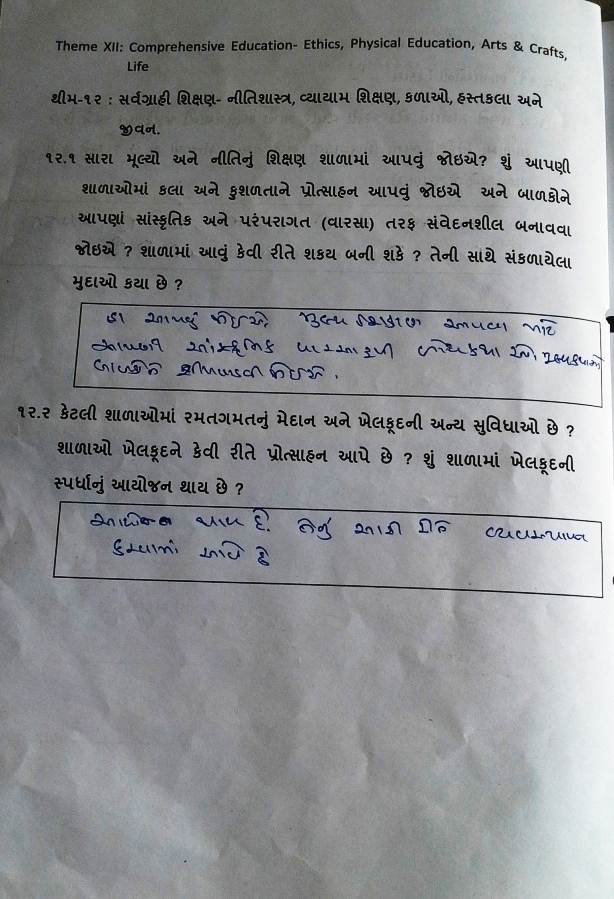 Theme XII: Comprehensive Education- Ethics, Physical Education, Arts & Crafts,
Life
થીમ-૧૨ : સર્વગ્રાહી શિક્ષણ- નીતિશાસ્ત્ર, વ્યાયામ શિક્ષણ, કળાઓ, હસ્તકલા અને
જીવન.
૧૨.૧ સારા મૂલ્યો અને નીતિનું શિક્ષણ શાળામાં આપવું જોઇએ? શું આપણી
શાળાઓમાં કલા અને કુશળતાને પ્રોત્સાહન આપવું જોઇએ અને બાળકોને
આપણાં સાંસ્કૃતિક અને પરંપરાગત (વારસા) તરફ સંવેદનશીલ બનાવવા
જોઇએ ? શાળામાં આવું કેવી રીતે શકય બની શકે ? તેની સાથે સંકળાયેલા
મુદાઓ કયા છે ?
હા આપવું જોઈએ. મુલ્ય શિક્ષણ આપવા માટે
આપણી સાંસ્કૃતિક વારસા રૂપી બોધકથા
બાળકોને શીખવવી જોઈએ.
૧૨.૨ કેટલી શાળાઓમાં રમતગમતનું મેદાન અને ખેલકૂદની અન્ય સુવિધાઓ છે ?
શાળાઓ ખેલકૂદને કેવી રીતે પ્રોત્સાહન આપે છે ? શું શાળામાં ખેલકૂદની
સ્પર્ધાનું આયોજન થાય છે ?
આયોજન થાય છે. તેનું સારી રીતે વ્યવસ્થાપન
કરવામાં આવે છે